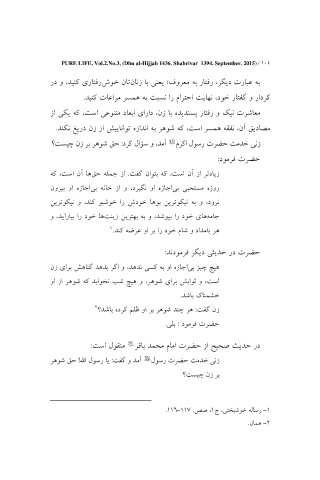 PURE LIFE, Vol.2.No.3, (Dhu al-Hijjah 1436. Shahrivar 1394. September. 2015) / ۱۰۱
به عبارت دیگر، رفتار به معروف؛ یعنی با زنان‌تان خوش‌رفتاری کنید، و در
کردار و گفتار خود، نهایت احترام را نسبت به همسر مراعات کنید.
معاشرت نیک و رفتار پسندیده با زن، دارای ابعاد متنوعی است، که یکی از
مصادیق آن، نفقه همسر است، که شوهر به اندازه توانایی‌اش از زن دریغ نکند.
زنی خدمت حضرت رسول اکرم آمد، و سؤال کرد: حق شوهر بر زن چیست؟
حضرت فرمود:
زیادتر از آن است، که بتوان گفت. از جمله حق‌ها آن است، که
روزه مستحبی بی‌اجازه او نگیرد، و از خانه بی‌اجازه او بیرون
نرود، و به نیکوترین بوها خودش را خوشبو کند، و نیکوترین
جامه‌های خود را بپوشد، و به بهترین زینت‌ها خود را بیاراید، و
هر بامداد و شام خود را بر او عرضه کند.۱
حضرت در حدیثی دیگر فرمودند:
هیچ چیز بی‌اجازه او به کسی ندهد، و اگر بدهد گناهش برای زن
است، و ثوابش برای شوهر، و هیچ شب نخوابد که شوهر از او
خشمناک باشد.
زن گفت: هر چند شوهر بر او ظلم کرده باشد؟۲
حضرت فرمود : بلی.
در حدیث صحیح از حضرت امام محمد باقر منقول است:
زنی خدمت حضرت رسول آمد و گفت: یا رسول الله! حق شوهر
بر زن چیست؟
۱- رساله خوشبختی، ج ۱، صص. ۱۱۷-۱۱۶.
۲- همان.